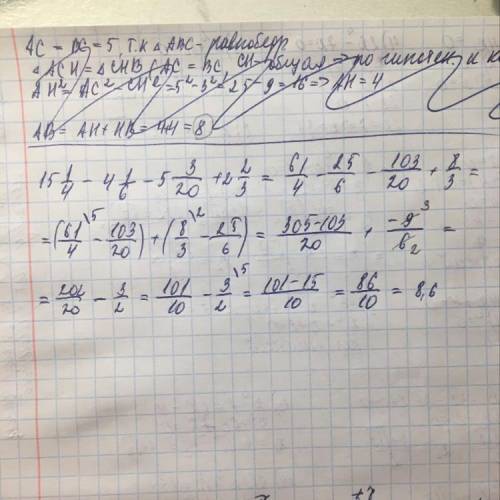 AC = BC = 5, т.к △ABC - равнобедр
△ACH = △CHB (AC = BC, CH - общая => по гипотен. и ка
AH² = AC² - CH² = 5² - 3² = 25 - 9 = 16 => AH = 4
AB = AH + HB = 4+4 = 8
15 1/4 - 4 1/6 - 5 3/20 + 2 2/3 = 61/4 - 25/6 - 103/20 + 8/3 =
= (61/4 \5 - 103/20) + (8/3 \2 - 25/6) = 305-103/20 + -9 3/6 2 =
= 202/20 - 3/2 = 101/10 - 3/2 \5 = 101-15/10 = 86/10 = 8,6